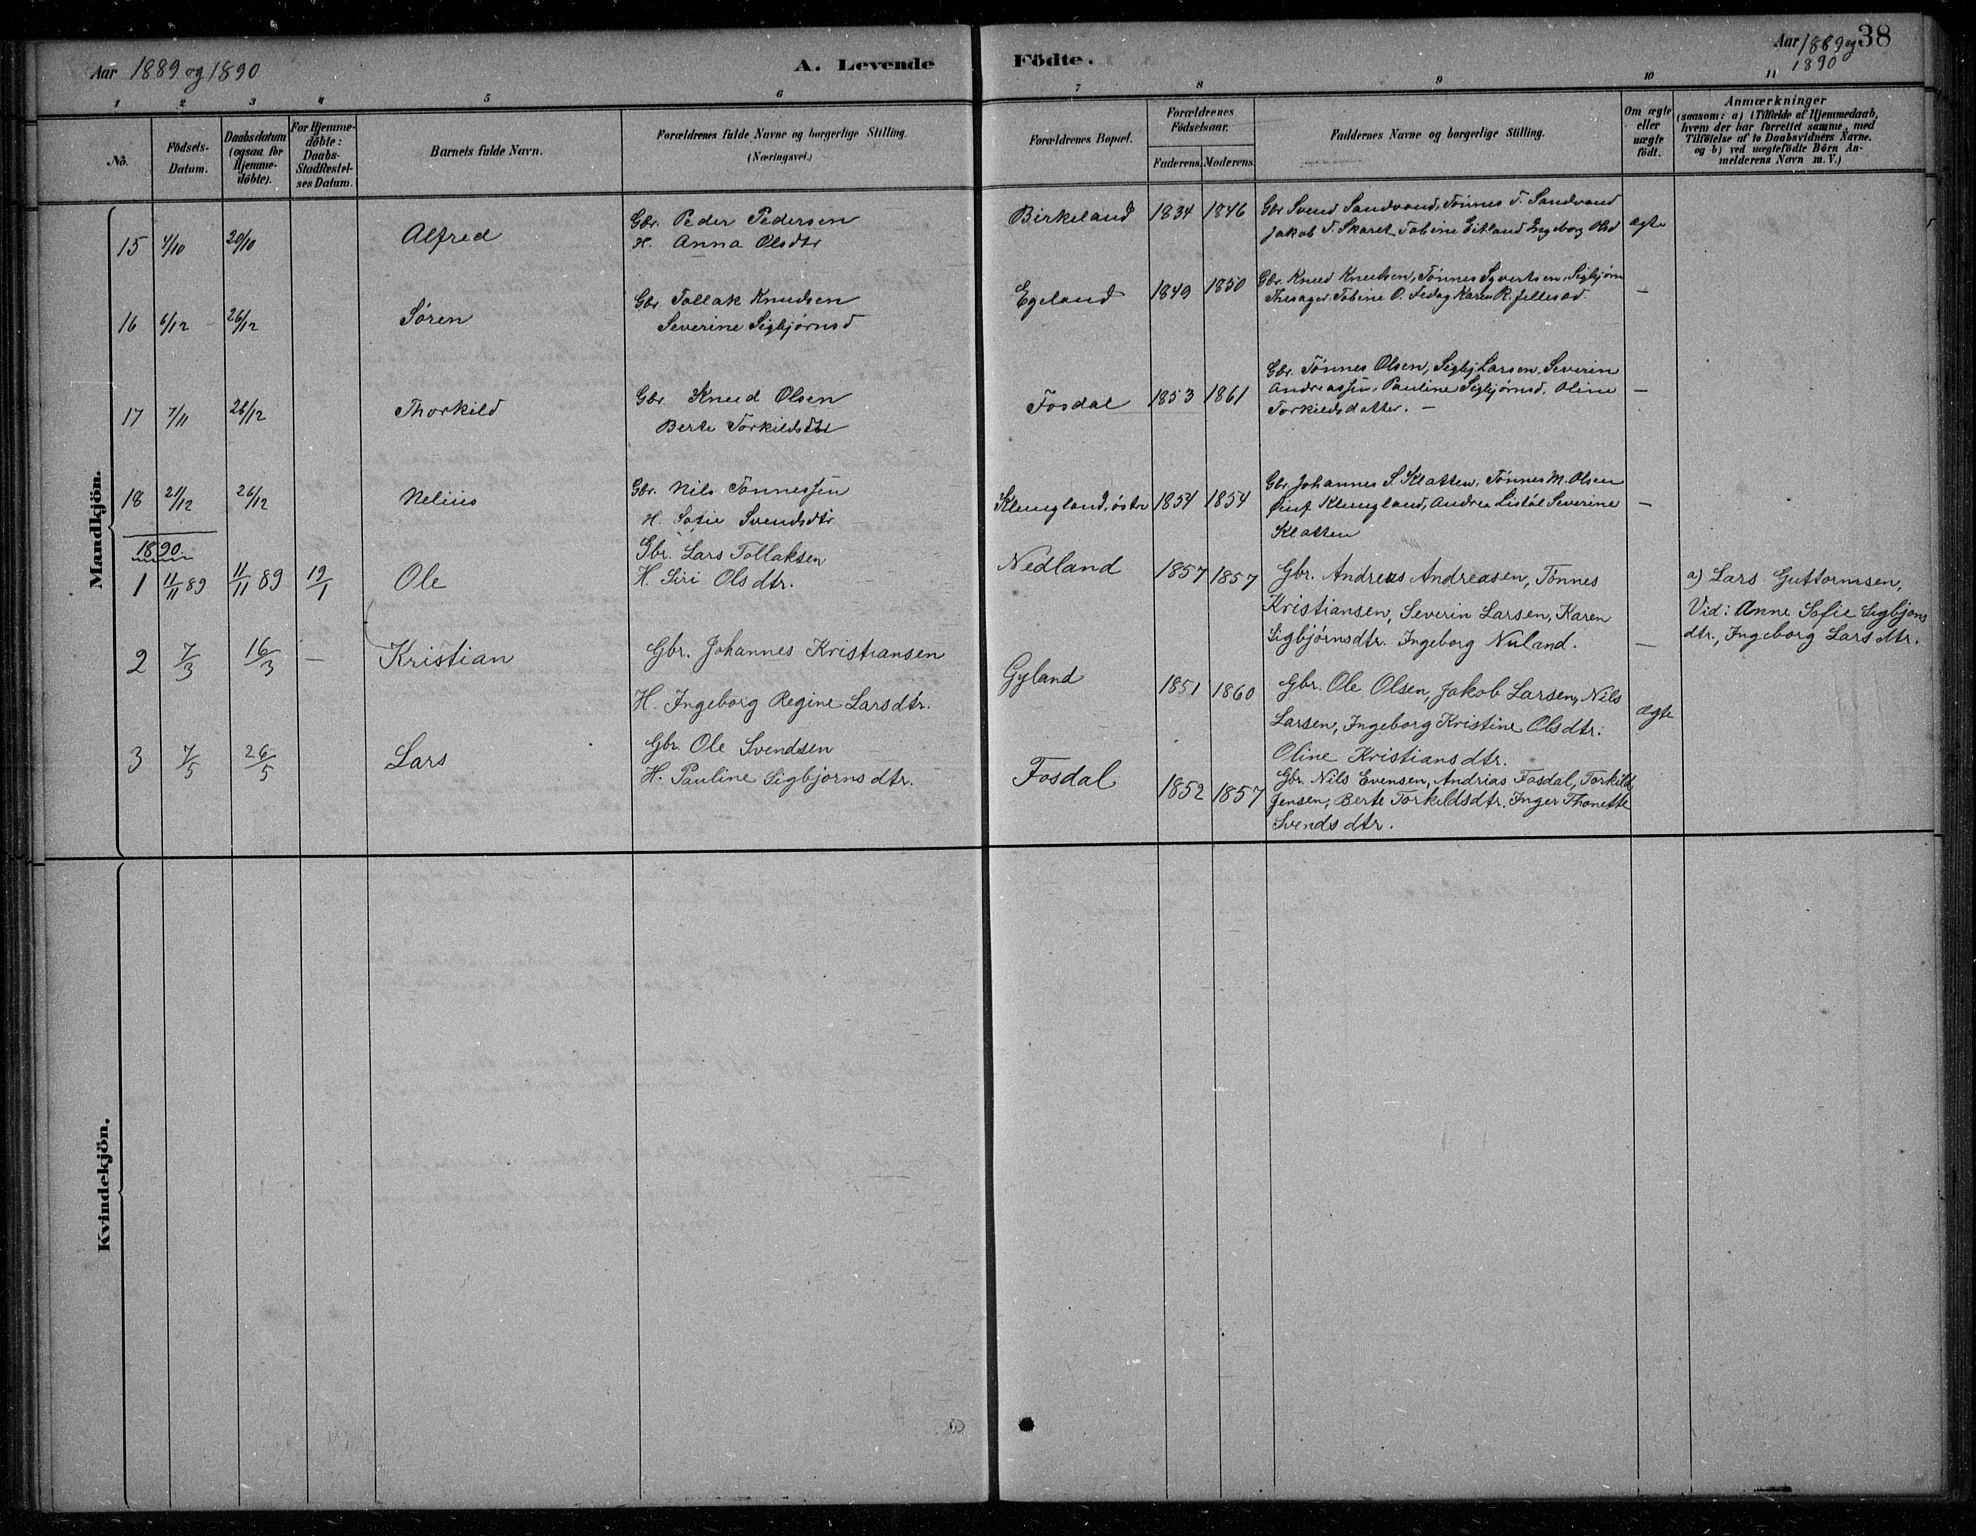 Aar 1889 og 1890
A. Levende
Födte.
Aar 1889 og 1890
38
1 2 3 4 5 6 7 8 9 10 11
No.
Födsels-
Datum.
Daabsdatum
(ogsaa for
Hjemme-
döbte).
For Hjemme-
döbte:
Daabs-
Stadfæstel-
ses Datum.
Barnets fulde Navn.
Forældrenes fulde Navne og borgerlige Stilling.
(Næringsvei.)
Forældrenes Bopæl.
Forældrenes
Födselsaar.
Faderens. Moderens.
Faddernes Navne og borgerlige Stilling.
Om ægte
eller
uægte
født.
Anmærkninger
(saasom: a) i Tilfælde af Hjemmedaab,
hvem der har forrettet samme, med
Tilföielse af to Daabsvidners Navne.
og b) ved uægtefödte Börn An-
melderens Navn m. V.)
Mandkjön.
15 4/10 20/10 Alfred
Gbr. Peder Pedersen
H. Anna Olsdtr
Birkeland 1834 1846
Gbr Svend Sandvand, Tönnes T. Sandvand
Jakob T. Skaret Tobine Eitland Ingeborg Olsd
ægte
16 6/12 26/12 Søren
Gbr Tollak Knudsen
Severine Sigbjørnsd
Egeland 1849 1850
Gbr. Knud Knudsen, Tønnes Syvertsen, Sigbjørn
Tobine O. Karen R.
—
17 7/11 26/12 Thorkild
Gbr. Knud Olsen
Berte Torkildsdtr
Fosdal 1853 1861
Gbr. Tønnes Olsen, Sigbj Larsen, Severin
Andreassen, Pauline Sigbjørnsd, Oline
Torkildsdatter. —
—
18 21/12 26/12 Nelius
Gbr. Nils Tønnessen
H. Sofie Svendsdtr
Klungland, östr 1854 1854
Gbr Johannes S. Klatten, Tønnes M. Olsen
Klungland, Andrea Listöl Severine
Klatten
—
1890.
1 11/11 89 11/11 89 19/1 Ole
Gbr. Lars Tollaksen
H. Siri Olsdtr.
Nedland 1857 1857
Gbr. Andreas Andreasen, Tønnes
Kristiansen, Severin Larsen, Karen
Sigbjørnsdtr. Ingeborg Nuland.
—
a) Lars Guttormsen,
Vid: Anne Sofie Sigbjøns
dtr., Ingeborg Larsdtr.
2 7/3 16/3 — Kristian
Gbr. Johannes Kristiansen
H. Ingeborg Regine Larsdtr.
Gyland 1851 1860
Gbr. Ole Olsen, Jakob Larsen, Nils
Larsen, Ingeborg Kristine Olsdtr.
Oline Kristiansdtr.
ægte
3 7/5 26/5 Lars
Gbr. Ole Svendsen
H. Pauline Sigbjørnsdtr.
Fosdal 1852 1857
Gbr. Nils Evensen, Andrias Fosdal, Torkild
Jensen, Berte Torkildsdtr. Inger Thonette
Svendsdtr.
Kvindekjön.